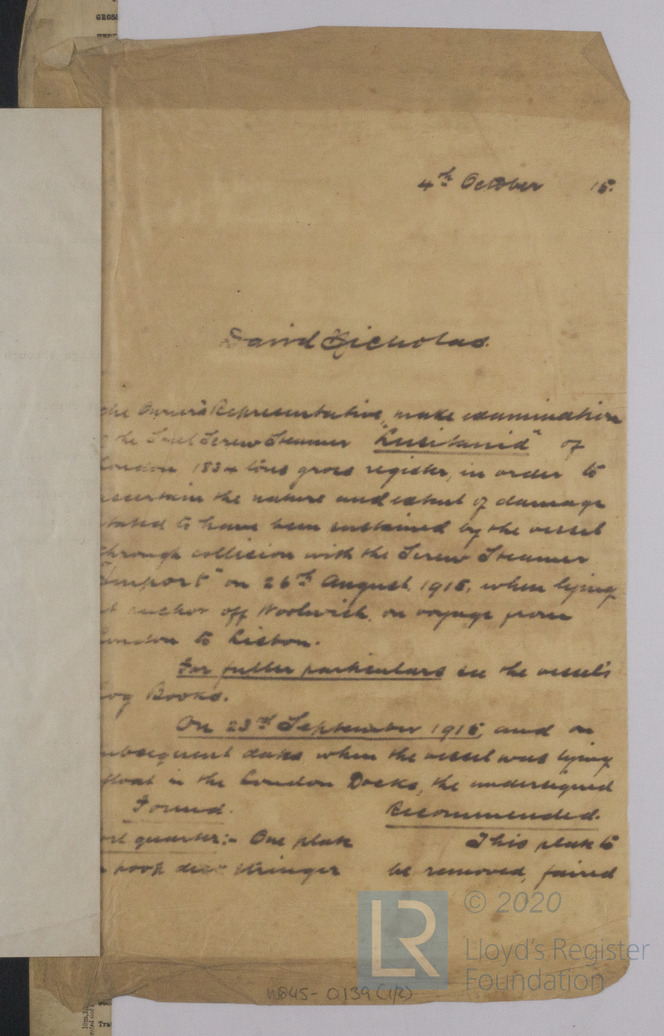 4th October 15.
David Nicholas.
the Owner's Representative, make examination
the Steel Screw Steamer "Lusitania" of
London 1834 tons gross register, in order to
ascertain the nature and extent of damage
stated to have been sustained by the vessel
through collision with the Screw Steamer
on 26th August, 1915, when lying
at anchor off Woolwich, on voyage from
London to Lisbon.
For fuller particulars see the vessel's
Log Books.
On 23rd September 1915, and on
subsequent dates when the vessel was lying
afloat in the London Docks, the undersigned
Found. Recommended.
Port quarter:- One plate This plate to
poop deck stringer be removed, faired
© 2020
LR
Lloyd's Register
Foundation
W845-0139 (1/2)